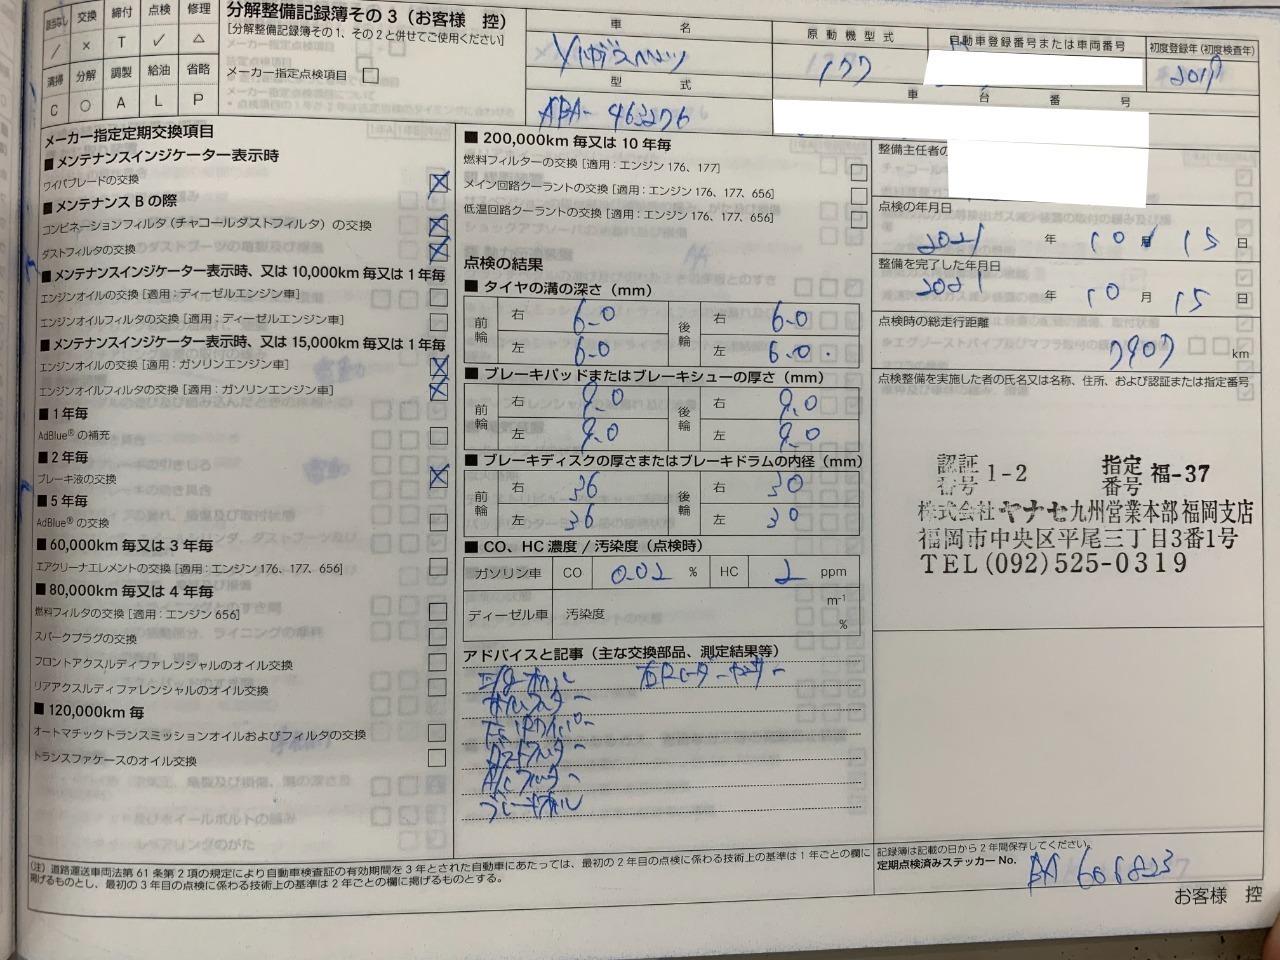 該当なし 交換 締付 点検 修理
/ × T ✓ △
清掃 分解 調製 給油 省略
C ○ A L P
分解整備記録簿その3(お客様 控)
[分解整備記録簿その1、その2と併せてご使用ください]
メーカー指定点検項目 □
車名
型式
ABA-463276
原動機型式
177
自動車登録番号または車両番号
初度登録年(初度検査年)
2019
車台番号
メーカー指定定期交換項目
■メンテナンスインジケーター表示時
ワイパブレードの交換 ☒
■メンテナンス B の際
コンビネーションフィルタ(チャコールダストフィルタ)の交換 ☒
ダストフィルタの交換 ☒
■メンテナンスインジケーター表示時、又は 10,000km 毎又は 1 年毎
エンジンオイルの交換 [適用:ディーゼルエンジン車] □
エンジンオイルフィルタの交換 [適用:ディーゼルエンジン車] □
■メンテナンスインジケーター表示時、又は 15,000km 毎又は 1 年毎
エンジンオイルの交換 [適用:ガソリンエンジン車] ☒
エンジンオイルフィルタの交換 [適用:ガソリンエンジン車] ☒
■ 1 年毎
AdBlue® の補充 □
■ 2 年毎
ブレーキ液の交換 ☒
■ 5 年毎
AdBlue® の交換 □
■ 60,000km 毎又は 3 年毎
エアクリーナエレメントの交換 [適用:エンジン 176、177、656] □
■ 80,000km 毎又は 4 年毎
燃料フィルタの交換 [適用:エンジン 656] □
スパークプラグの交換 □
フロントアクスルディファレンシャルのオイル交換 □
リアアクスルディファレンシャルのオイル交換 □
■ 120,000km 毎
オートマチックトランスミッションオイルおよびフィルタの交換 □
トランスファケースのオイル交換 □
■ 200,000km 毎又は 10 年毎
燃料フィルターの交換 [適用:エンジン 176、177] □
メイン回路クーラントの交換 [適用:エンジン 176、177、656] □
低温回路クーラントの交換 [適用:エンジン 176、177、656] □
点検の結果
■ タイヤの溝の深さ(mm)
前輪 右 6.0 後輪 右 6.0
左 6.0 左 6.0
■ ブレーキパッドまたはブレーキシューの厚さ(mm)
前輪 右 9.0 後輪 右 9.0
左 9.0 左 9.0
■ ブレーキディスクの厚さまたはブレーキドラムの内径(mm)
前輪 右 36 後輪 右 30
左 36 左 30
■ CO、HC 濃度 / 汚染度(点検時)
ガソリン車 CO 0.02 % HC 2 ppm
ディーゼル車 汚染度 m⁻¹
%
アドバイスと記事(主な交換部品、測定結果等)
ブレーキオイル
整備主任者の
点検の年月日
2021 年 10 月 15 日
整備を完了した年月日
2021 年 10 月 15 日
点検時の総走行距離
7907 km
点検整備を実施した者の氏名又は名称、住所、および認証または指定番号
認証番号 1-2 指定番号 福-37
株式会社ヤナセ九州営業本部福岡支店
福岡市中央区平尾三丁目3番1号
TEL(092)525-0319
(注)道路運送車両法第 61 条第 2 項の規定により自動車検査証の有効期間を 3 年とされた自動車にあたっては、最初の 2 年目の点検に係わる技術上の基準は 1 年ごとの欄に
掲げるものとし、最初の 3 年目の点検に係わる技術上の基準は 2 年ごとの欄に掲げるものとする。
記録簿は記載の日から 2 年間保存してください。
定期点検済みステッカー No. BA 606823
お客様 控